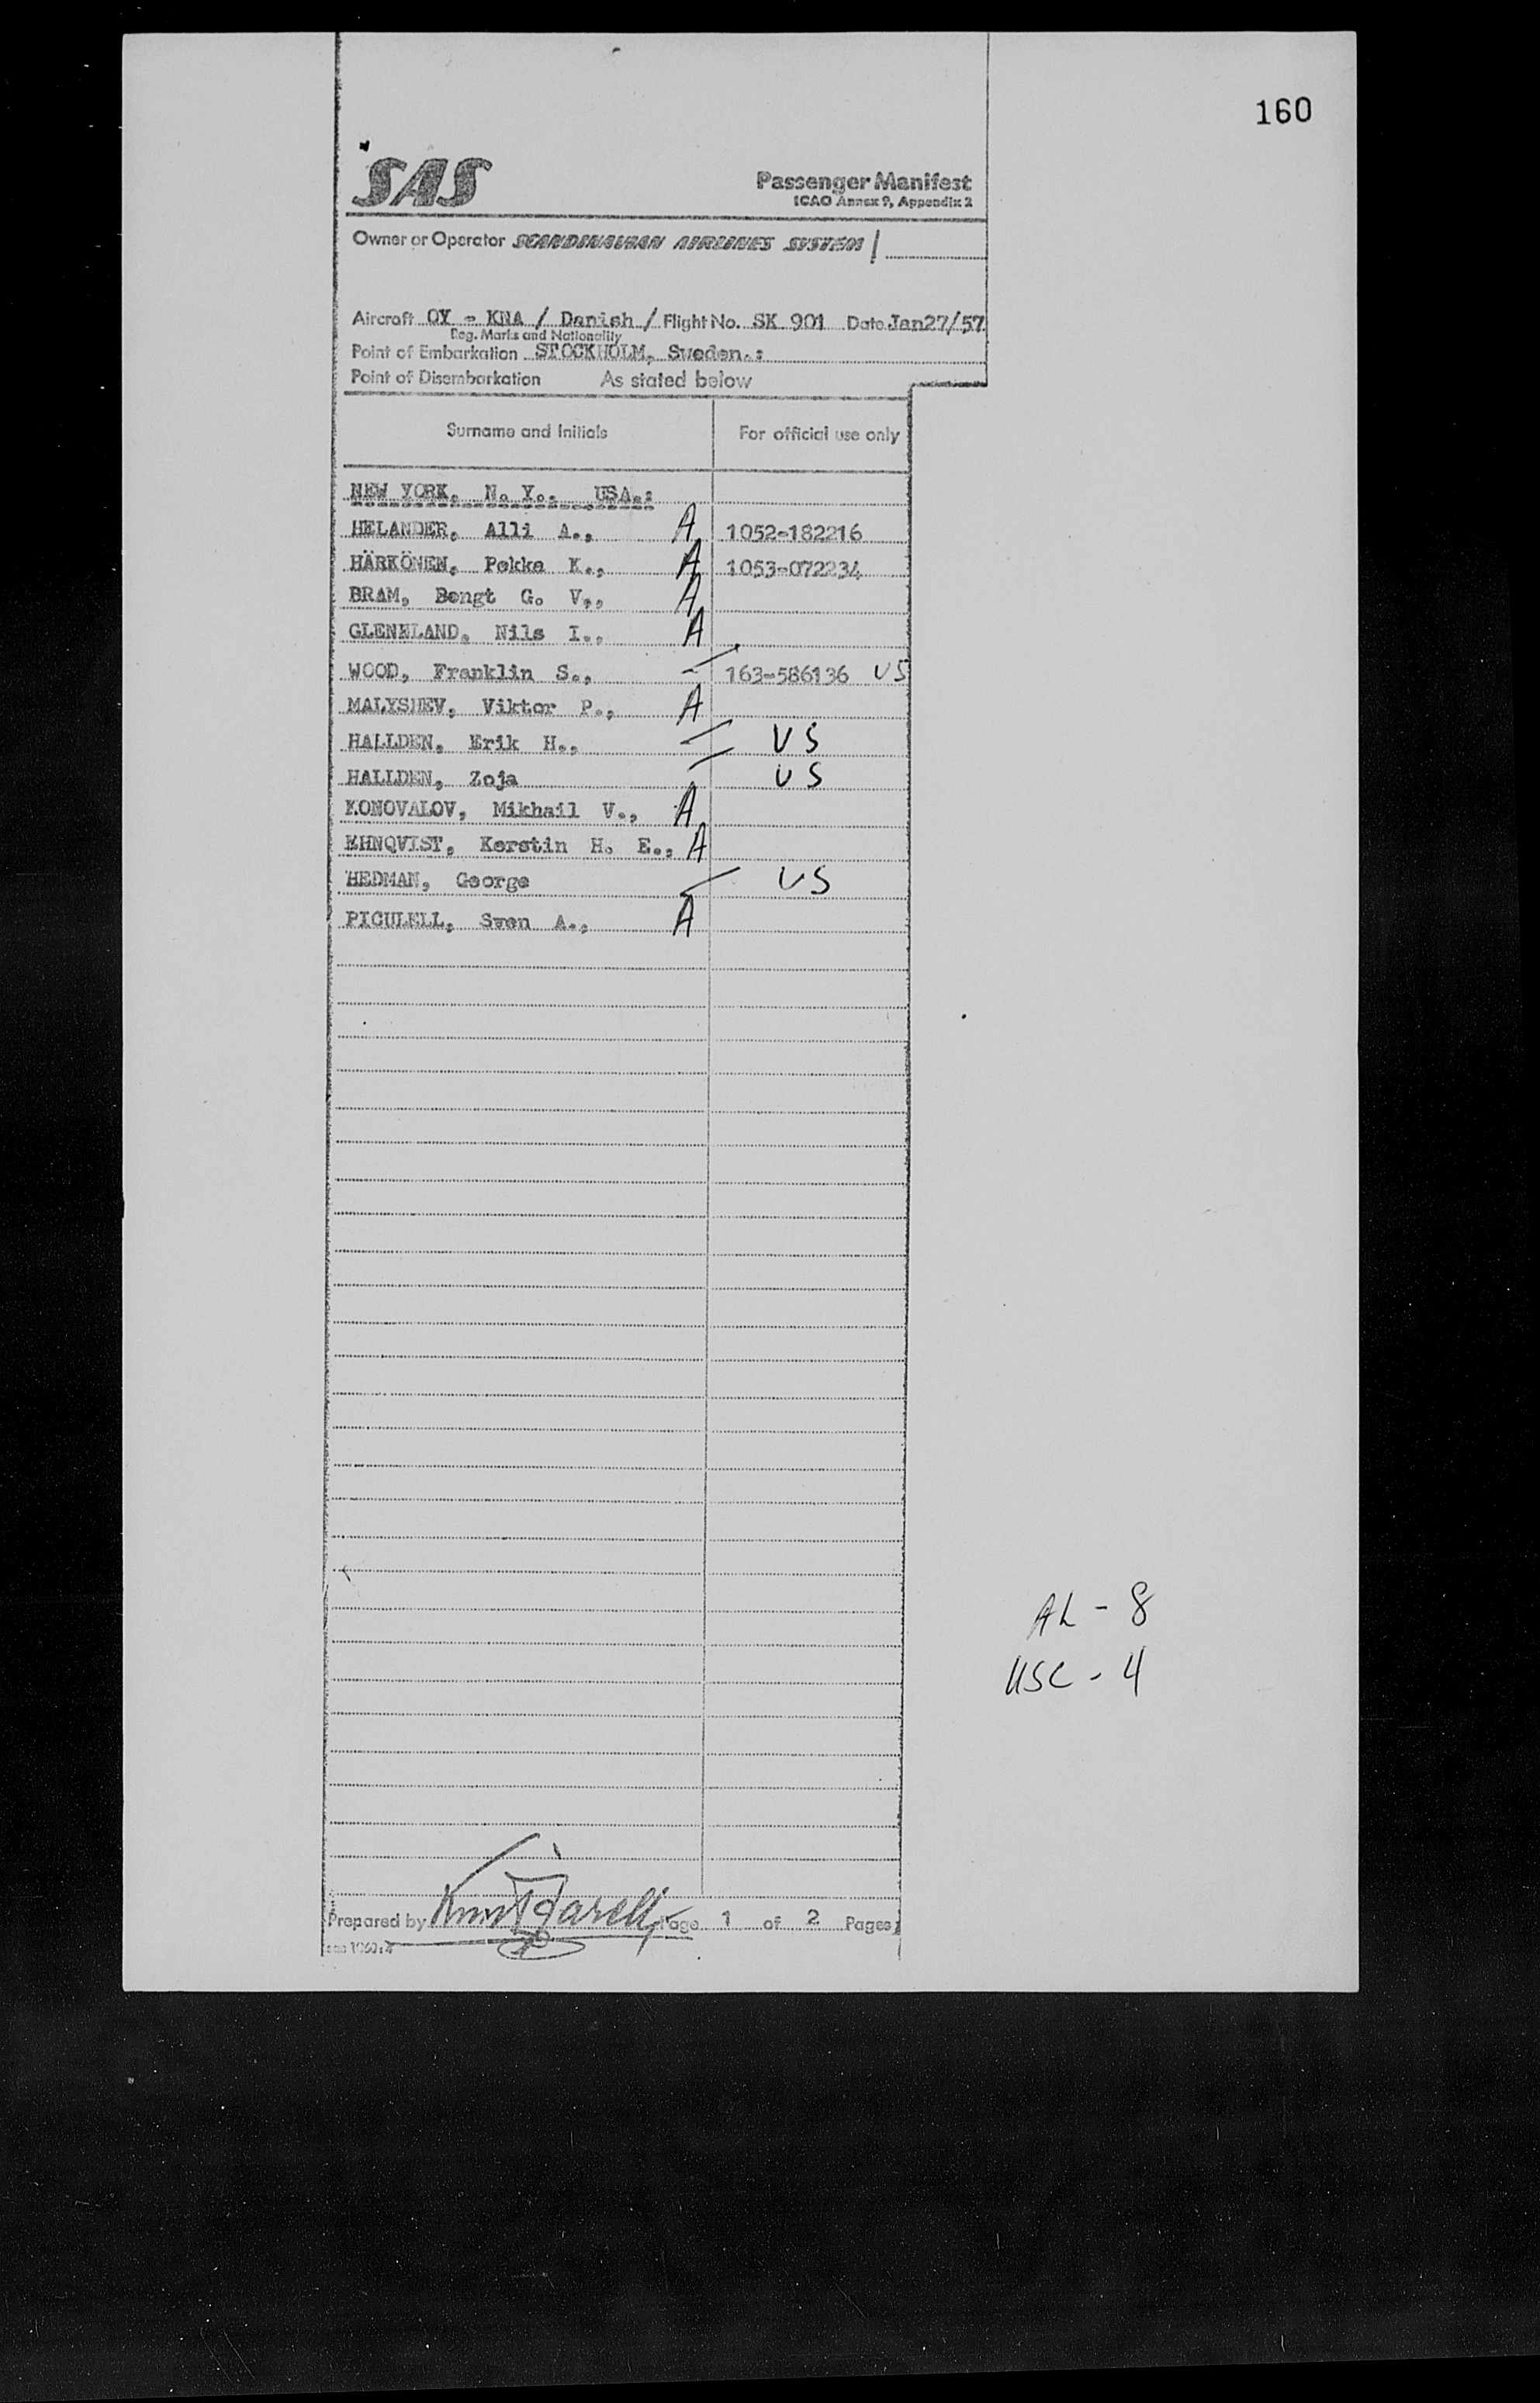 160
SAS
Passenger Manifest
ICAO Annex 9, Appendix 2
Owner or Operator SCANDINAVIAN AIRLINES SYSTEM
Aircraft OY - KNA / Danish / Flight No. SK 901 Date Jan27/57
Reg. Marks and Nationality
Point of Embarkation STOCKHOLM, Sweden.:
Point of Disembarkation As stated below
Surname and Initials For official use only
NEW YORK, N. Y., USA.:
HELANDER, Alli A., A 1052-182216
HÄRKÖNEN, Pekka K., A 1053-072234
BRAM, Bengt G. V., A
GLENNLAND, Nils I., A
WOOD, Franklin S., 163-586136 US
MALYSHEV, Viktor P., A
HALLDEN, Erik H., US
HALLDEN, Zoja US
KONOVALOV, Mikhail V., A
EHNQVIST, Kerstin H. E., A
HEDMAN, George US
PICULELL, Sven A., A
AL - 8
USC - 4
Prepared by Page 1 of 2 Pages